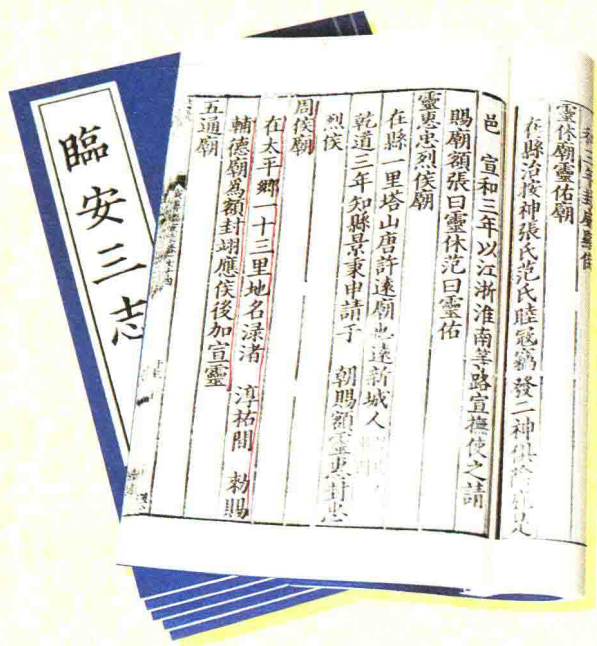 靈休廟靈佑廟
在縣治按神張氏范氏睦寇竊發二神俱
邑　宣和三年以江浙淮南等路宣撫使之請
賜廟額張曰靈休范曰靈佑
靈惠忠烈侯廟
在縣一里塔山唐許遠廟也遠新城人
乾道三年知縣景秉申請于　朝賜額靈惠封忠
烈侯
周侯廟
在太平鄉一十三里地名渌渚　淳祐間　勑賜
輔德廟為額封翊應侯後加宣靈
五通廟
臨安三志